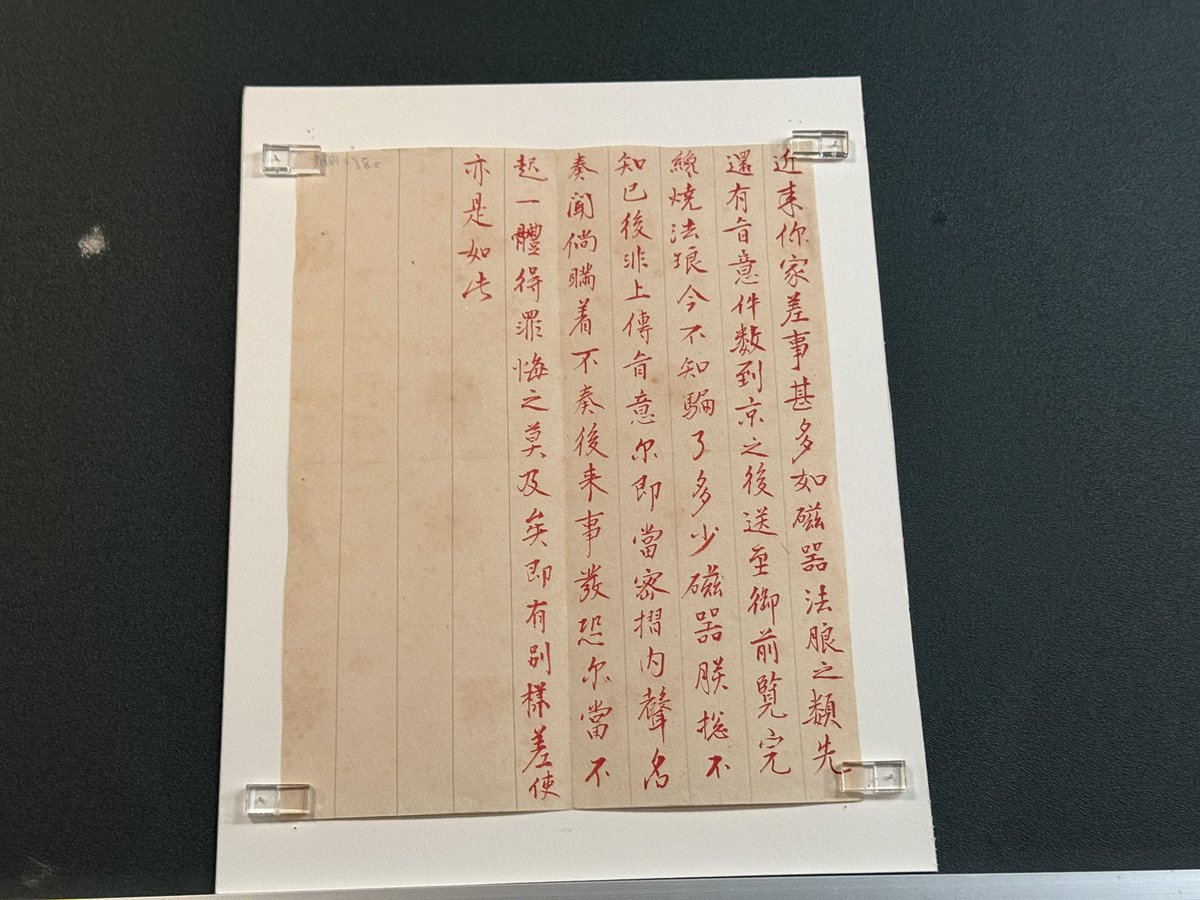 近来你家差事甚多如磁器法脼之類先
還有旨意件数到京之後送至御前覽完
纔燒法琅今不知騙了多少磁器朕揔不
知已後非上傳旨意尔即當密摺内聲名
奏聞倘瞞着不奏後来事發恐尔當不
起一體得罪悔之莫及矣即有别樣差使
亦是如此